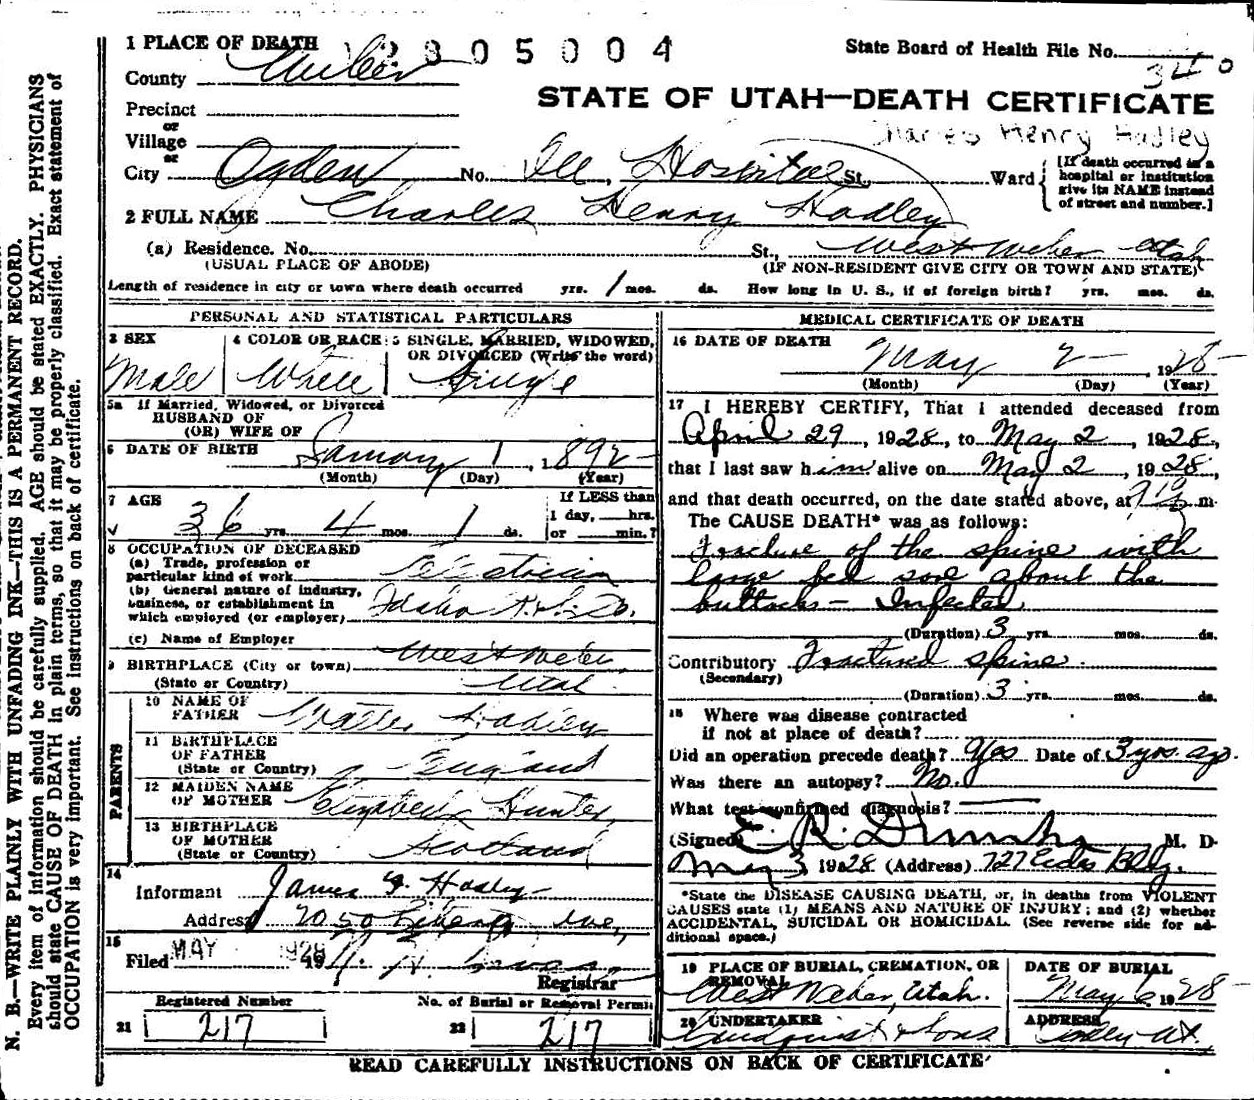 N. B.—WRITE PLAINLY WITH UNFADING INK—THIS IS A PERMANENT RECORD.
Every item of information should be carefully supplied. AGE should be stated EXACTLY. PHYSICIANS
should state CAUSE OF DEATH in plain terms, so that it may be properly classified. Exact statement of
OCCUPATION is very important. See instructions on back of certificate.
1 PLACE OF DEATH
2805004
State Board of Health File No.
340
County Weber
STATE OF UTAH—DEATH CERTIFICATE
Precinct
or
Charles Henry Hadley
Village
or
City Ogden No. Dee Hospital St. Ward
[If death occurred in a
hospital or institution
give its NAME instead
of street and number.]
2 FULL NAME Charles Henry Hadley
(a) Residence. No. St., West Weber Utah
(USUAL PLACE OF ABODE) (IF NON-RESIDENT GIVE CITY OR TOWN AND STATE)
Length of residence in city or town where death occurred yrs. 1 mos. ds. How long in U. S., if of foreign birth? yrs. mos. ds.
PERSONAL AND STATISTICAL PARTICULARS
3 SEX 4 COLOR OR RACE 5 SINGLE, MARRIED, WIDOWED,
OR DIVORCED (Write the word)
Male White Single
5a If Married, Widowed, or Divorced
HUSBAND OF
(OR) WIFE OF
6 DATE OF BIRTH January 1, 1892
(Month) (Day) (Year)
7 AGE If LESS than
1 day, hrs.
36 yrs. 4 mos. 1 ds. or min.?
8 OCCUPATION OF DECEASED
(a) Trade, profession or
particular kind of work Electrician
(b) General nature of industry,
business, or establishment in
which employed (or employer) Idaho Co.
(c) Name of Employer
9 BIRTHPLACE (City or town) West Weber
(State or Country) Utah
PARENTS
10 NAME OF
FATHER Walter Hadley
11 BIRTHPLACE
OF FATHER
(State or Country) England
12 MAIDEN NAME
OF MOTHER Elizabeth Hunter
13 BIRTHPLACE
OF MOTHER
(State or Country) Scotland
14
Informant James Hadley
Address Ave,
15
Filed MAY 1928
Registrar
Registered Number No. of Burial or Removal Permit
21 217 22 217
MEDICAL CERTIFICATE OF DEATH
16 DATE OF DEATH May 2 1928
(Month) (Day) (Year)
17 I HEREBY CERTIFY, That I attended deceased from
April 29, 1928, to May 2, 1928,
that I last saw him alive on May 2, 1928,
and that death occurred, on the date stated above, at m.
The CAUSE DEATH* was as follows:
Fracture of the spine with
large bed sore about the
buttocks — Infected
(Duration) 3 yrs. mos. ds.
Contributory Fractured spine.
(Secondary)
(Duration) 3 yrs. mos. ds.
18 Where was disease contracted
if not at place of death?
Did an operation precede death? Yes Date of 3 yrs. ago.
Was there an autopsy? No.
What test confirmed diagnosis?
(Signed) E. R. M. D.
May 3 1928 (Address) 727 Bldg.
*State the DISEASE CAUSING DEATH, or, in deaths from VIOLENT
CAUSES state (1) MEANS AND NATURE OF INJURY; and (2) whether
ACCIDENTAL, SUICIDAL OR HOMICIDAL. (See reverse side for ad-
ditional space.)
19 PLACE OF BURIAL, CREMATION, OR
REMOVAL
DATE OF BURIAL
West Weber, Utah. May 6 1928
20 UNDERTAKER ADDRESS
Lindquist & Sons Ut.
READ CAREFULLY INSTRUCTIONS ON BACK OF CERTIFICATE